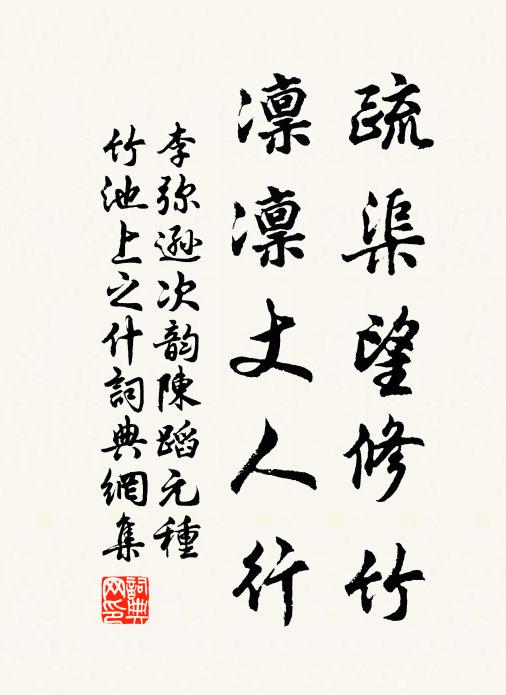 疏渠望修竹
凛凛丈人行
李弥遜次韵陳蹈元種
竹池上之什詞典網集
詞典網印